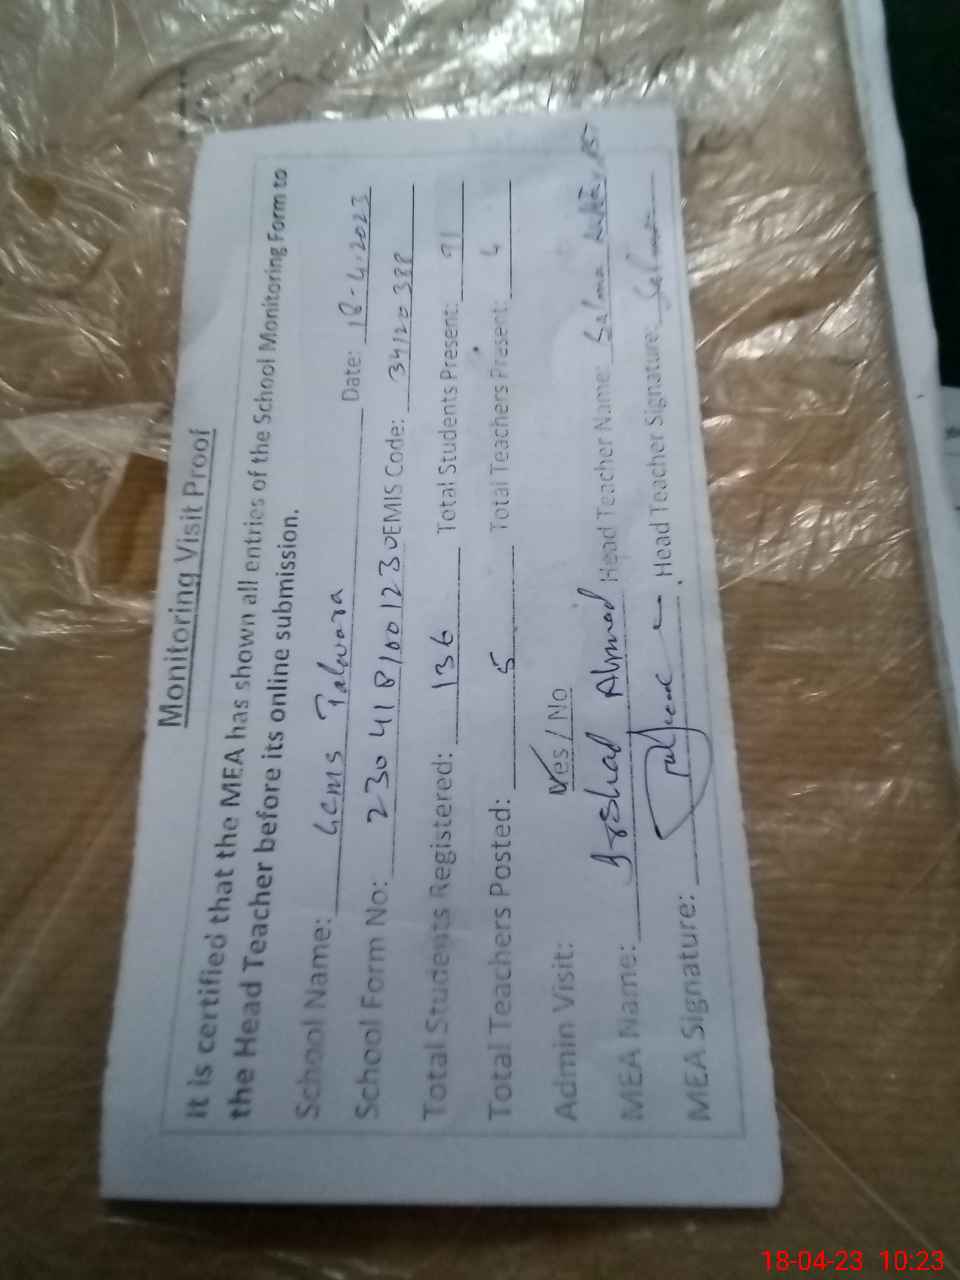 Monitoring Visit Proof
It is certified that the MEA has shown all entries of the School Monitoring Form to
the Head Teacher before its online submission.
School Name: GCMS Talwara Date: 18-4-2023
School Form No: 2304181001230 EMIS Code: 34120388
Total Students Registered: 136 Total Students Present: 91
Total Teachers Posted: 5 Total Teachers Present: 4
Admin Visit: Yes / No
MEA Name: Irshad Ahmad Head Teacher Name: Salma
MEA Signature: Head Teacher Signature: Salma
18-04-23 10:23